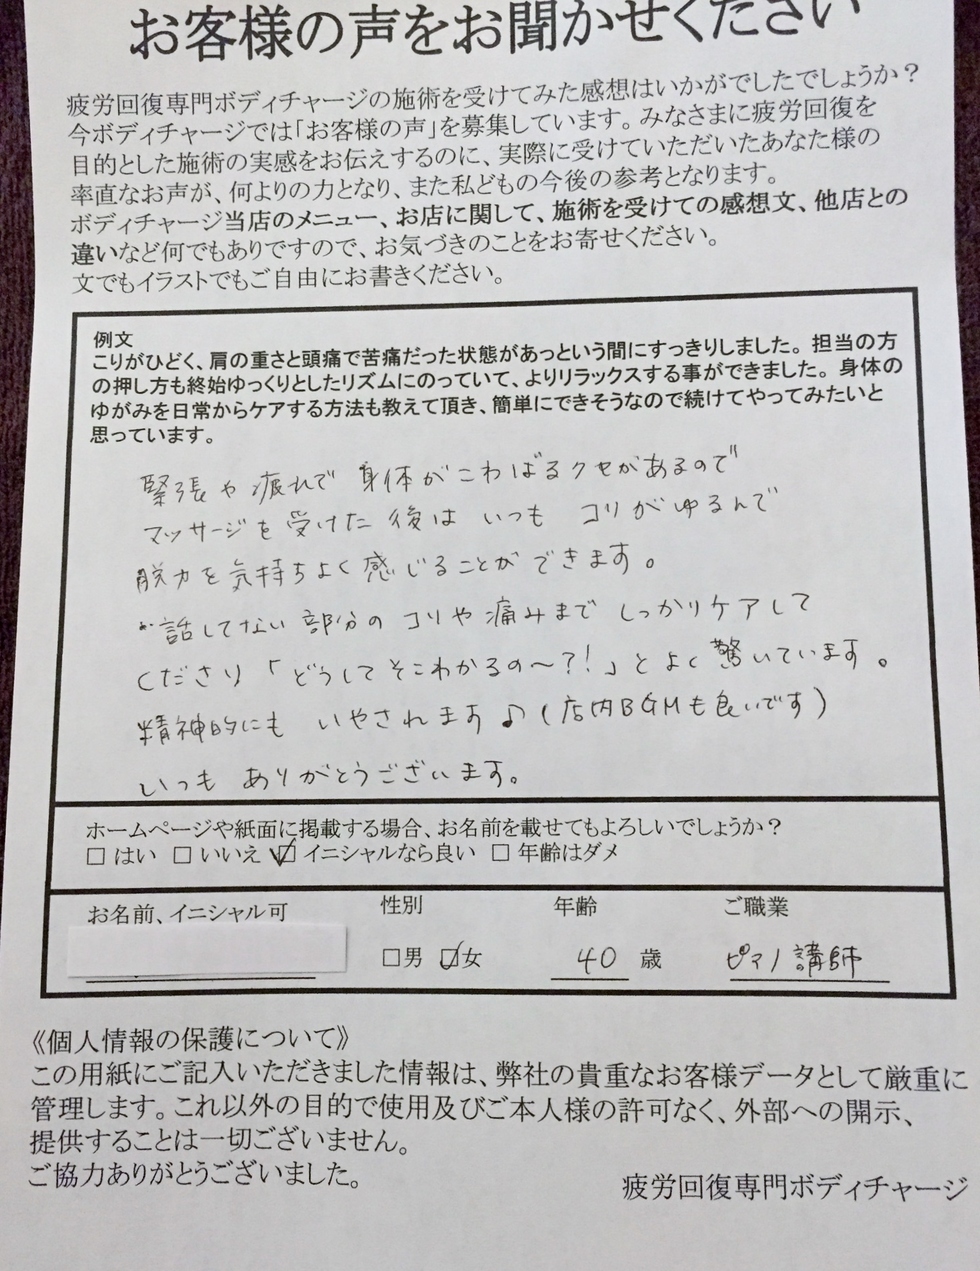 お客様の声をお聞かせください
疲労回復専門ボディチャージの施術を受けてみた感想はいかがでしたでしょうか？
今ボディチャージでは「お客様の声」を募集しています。みなさまに疲労回復を
目的とした施術の実感をお伝えするのに、実際に受けていただいたあなた様の
率直なお声が、何よりの力となり、また私どもの今後の参考となります。
ボディチャージ当店のメニュー、お店に関して、施術を受けての感想文、他店との
違いなど何でもありですので、お気づきのことをお寄せください。
文でもイラストでもご自由にお書きください。
例文
こりがひどく、肩の重さと頭痛で苦痛だった状態があっという間にすっきりしました。担当の方
の押し方も終始ゆっくりとしたリズムにのっていて、よりリラックスする事ができました。身体の
ゆがみを日常からケアする方法も教えて頂き、簡単にできそうなので続けてやってみたいと
思っています。
緊張や疲れで身体がこわばるクセがあるので
マッサージを受けた後はいつもコリがゆるんで
脱力を気持ちよく感じることができます。
お話してない部分のコリや痛みまでしっかりケアして
くださり「どうしてそこわかるの〜?!」とよく驚いています。
精神的にもいやされます♪(店内BGMも良いです)
いつもありがとうございます。
ホームページや紙面に掲載する場合、お名前を載せてもよろしいでしょうか？
□ はい □ いいえ ☑ イニシャルなら良い □ 年齢はダメ
お名前、イニシャル可 性別 年齢 ご職業
□男 ☑女 40 歳 ピアノ講師
《個人情報の保護について》
この用紙にご記入いただきました情報は、弊社の貴重なお客様データとして厳重に
管理します。これ以外の目的で使用及びご本人様の許可なく、外部への開示、
提供することは一切ございません。
ご協力ありがとうございました。
疲労回復専門ボディチャージ